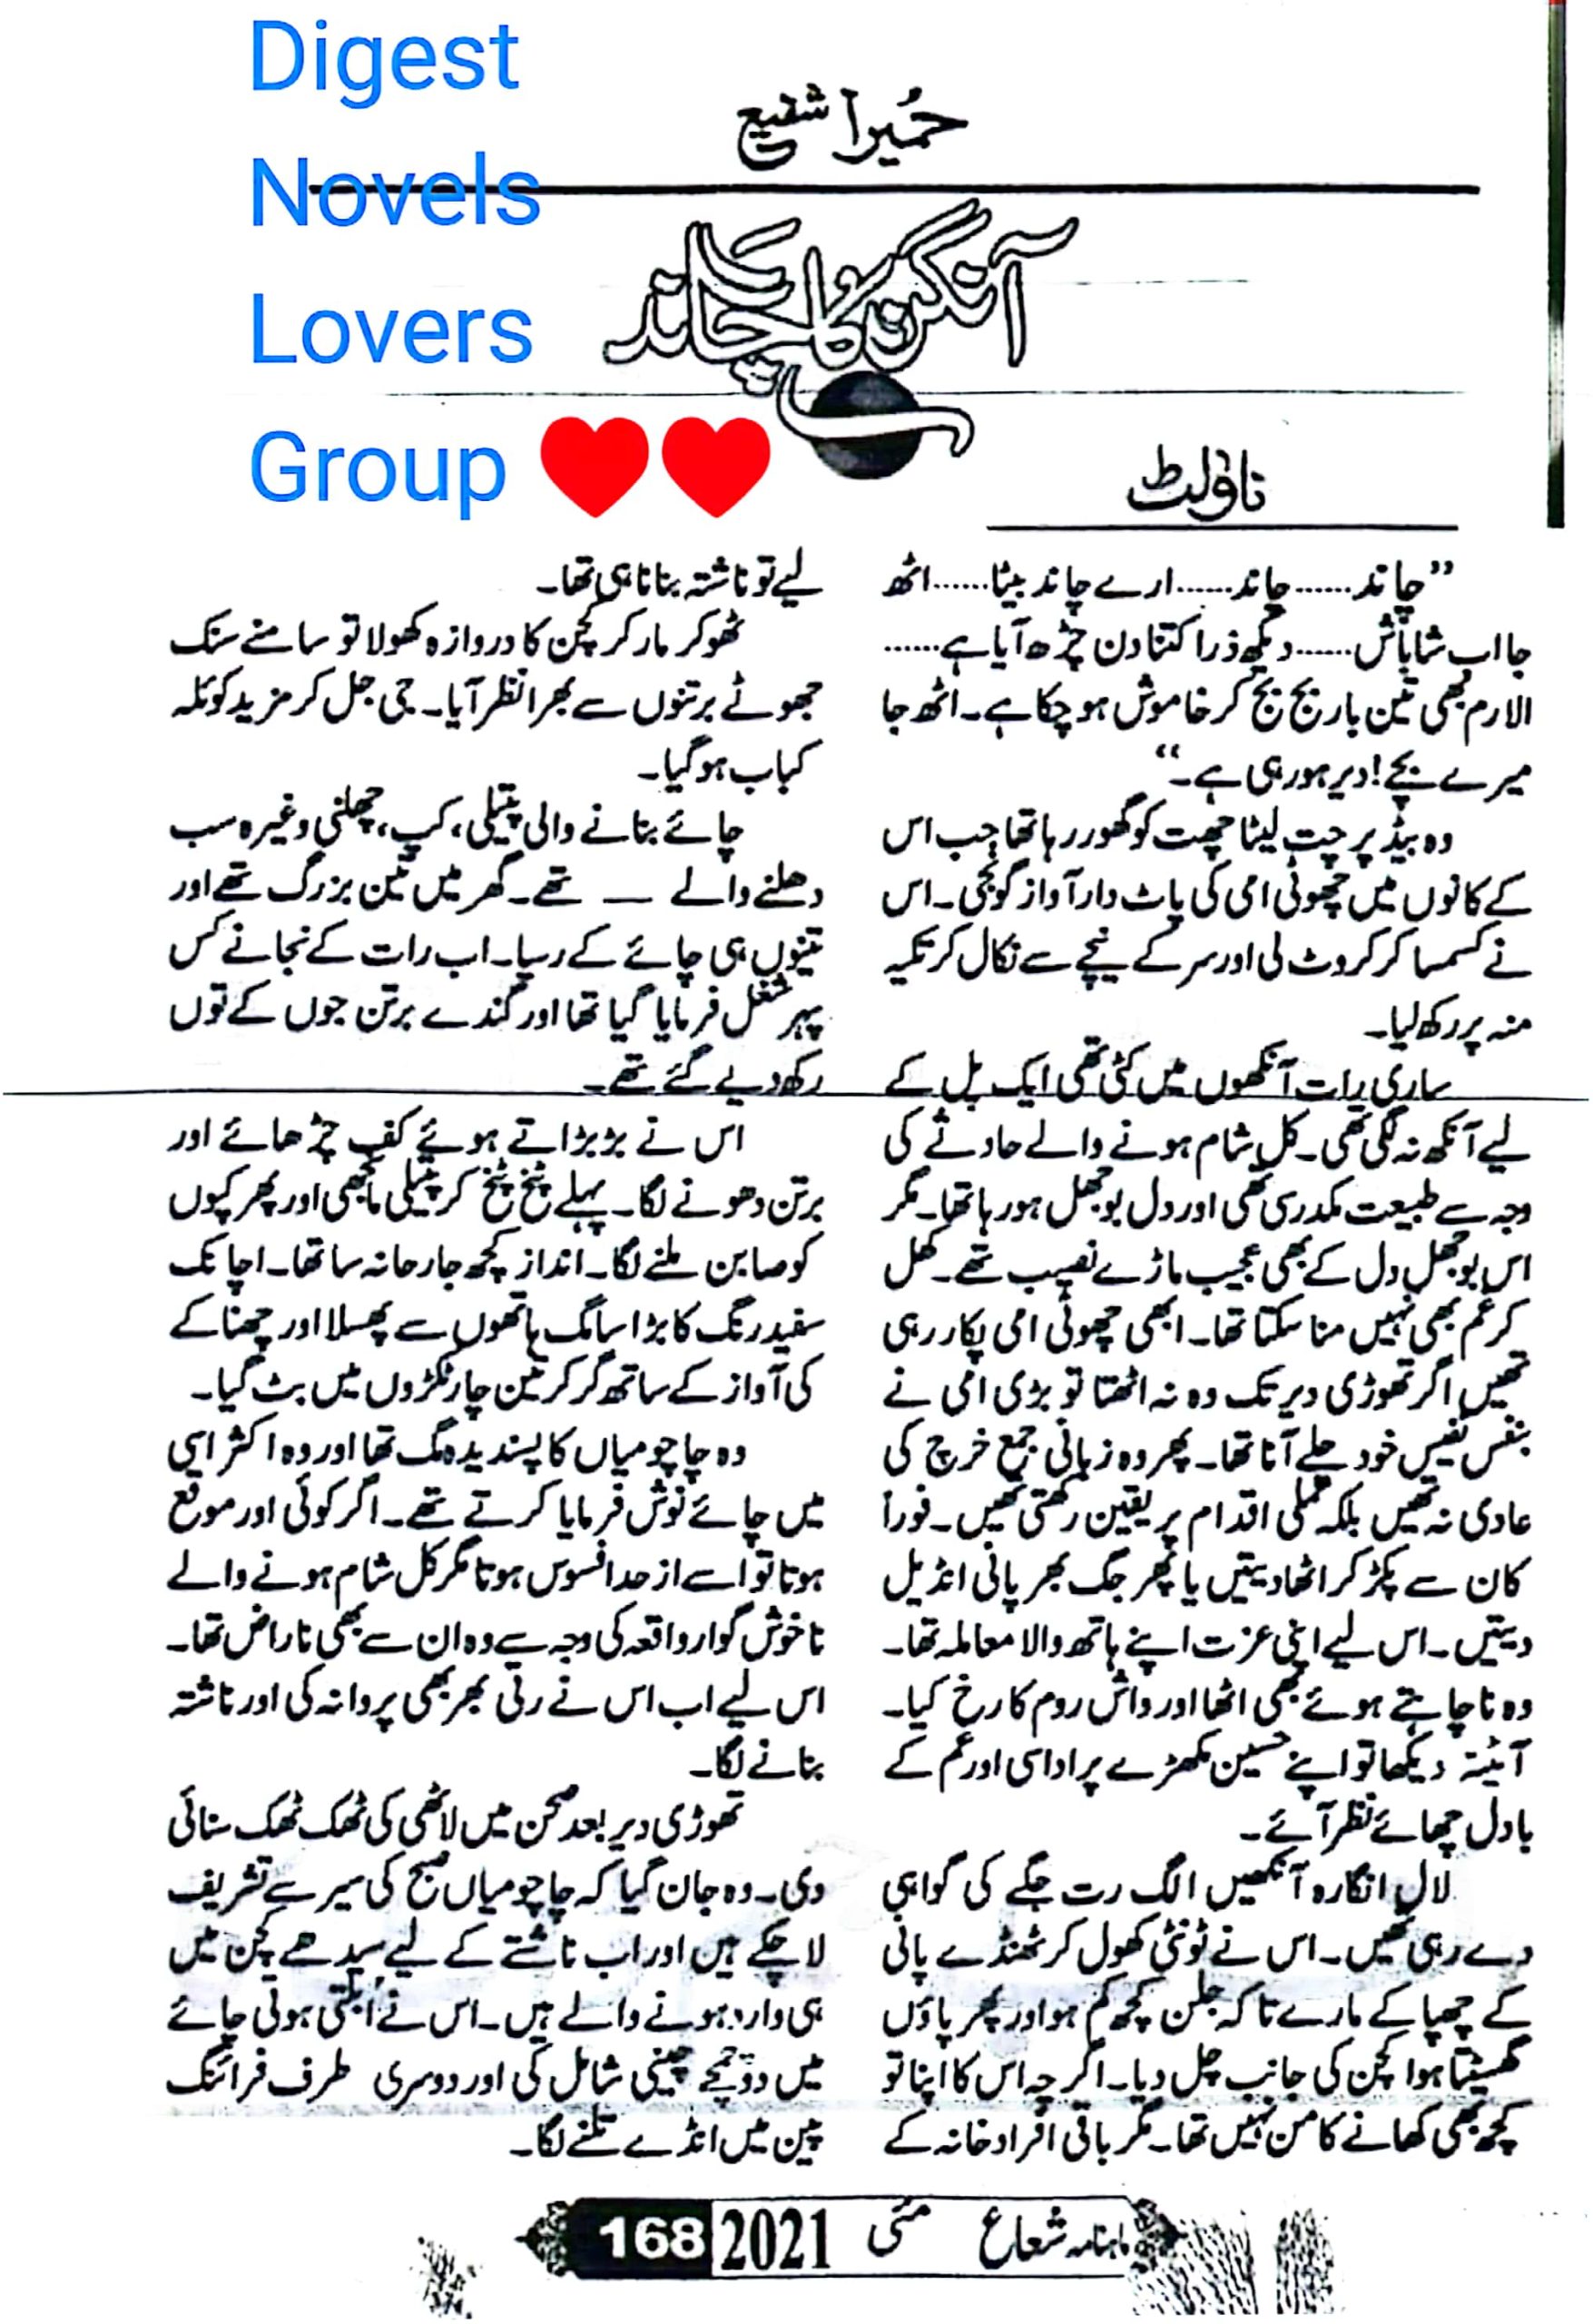 Digest
Novels
Lovers
Group ❤❤
حُمیرا شفیع
آنگن کا چاند
ناولٹ
”چاند......چاند......ارے چاند بیٹا......اٹھ
جا اب شاباش......دیکھ ذرا کتنا دن چڑھ آیا ہے......
الارم بھی تین بار بج بج کر خاموش ہو چکا ہے۔ اٹھ جا
میرے بچے! دیر ہو رہی ہے۔“
وہ بیڈ پر چت لیٹا چھت کو گھور رہا تھا جب اس
کے کانوں میں چھوٹی امی کی پاٹ دار آواز گونجی۔ اس
نے کسمسا کر کروٹ لی اور سر کے نیچے سے نکال کر تکیہ
منہ پر رکھ لیا۔
ساری رات آنکھوں میں کٹی تھی ایک پل کے
لیے آنکھ نہ لگی تھی۔ کل شام ہونے والے حادثے کی
وجہ سے طبیعت مکدر سی تھی اور دل بوجھل ہو رہا تھا۔ مگر
اس بوجھل دل کے بھی عجیب ماڑے نصیب تھے۔ کھل
کر غم بھی نہیں منا سکتا تھا۔ ابھی چھوٹی امی پکار رہی
تھیں اگر تھوڑی دیر تک وہ نہ اٹھتا تو بڑی امی نے
بنفس نفیس خود چلے آنا تھا۔ پھر وہ زبانی جمع خرچ کی
عادی نہ تھیں بلکہ عملی اقدام پر یقین رکھتی تھیں۔ فوراً
کان سے پکڑ کر اٹھا دیتیں یا پھر جگ بھر پانی انڈیل
دیتیں۔ اس لیے اپنی عزت اپنے ہاتھ والا معاملہ تھا۔
وہ نا چاہتے ہوئے بھی اٹھا اور واش روم کا رخ کیا۔
آئینہ دیکھا تو اپنے حسین مکھڑے پر اداسی اور غم کے
بادل چھائے نظر آئے۔
لال انگارہ آنکھیں الگ رت جگے کی گواہی
دے رہی تھیں۔ اس نے ٹونٹی کھول کر ٹھنڈے پانی
کے چھپا کے مارے تا کہ جلن کچھ کم ہو اور پھر پاؤں
گھسیٹتا ہوا کچن کی جانب چل دیا۔ اگرچہ اس کا اپنا تو
کچھ بھی کھانے کا من نہیں تھا۔ مگر باقی افراد خانہ کے
لیے تو ناشتہ بنانا ہی تھا۔
ٹھوکر مار کر کچن کا دروازہ کھولا تو سامنے سنک
جھوٹے برتنوں سے بھرا نظر آیا۔ جی جل کر مزید کوئلہ
کباب ہو گیا۔
چائے بنانے والی پتیلی، کپ، چھلنی وغیرہ سب
دھلنے والے — تھے۔ گھر میں تین بزرگ تھے اور
تینوں ہی چائے کے رسیا۔ اب رات کے نجانے کس
پہر شغل فرمایا گیا تھا اور گندے برتن جوں کے توں
رکھ دیے گئے تھے۔
اس نے بڑبڑاتے ہوئے کف چڑھائے اور
برتن دھونے لگا۔ پہلے پٹخ پٹخ کر پتیلی مانجھی اور پھر کپوں
کو صابن ملنے لگا۔ انداز کچھ جارحانہ سا تھا۔ اچانک
سفید رنگ کا بڑا سا مگ ہاتھوں سے پھسلا اور چھنا کے
کی آواز کے ساتھ گر کر تین چار ٹکڑوں میں بٹ گیا۔
وہ چاچو میاں کا پسندیدہ مگ تھا اور وہ اکثر اسی
میں چائے نوش فرمایا کرتے تھے۔ اگر کوئی اور موقع
ہوتا تو اسے از حد افسوس ہوتا مگر کل شام ہونے والے
ناخوش گوار واقعہ کی وجہ سے وہ ان سے بھی ناراض تھا۔
اس لیے اب اس نے رتی بھر بھی پروا نہ کی اور ناشتہ
بنانے لگا۔
تھوڑی دیر بعد صحن میں لاٹھی کی ٹھک ٹھک سنائی
دی۔ وہ جان گیا کہ چاچو میاں صبح کی سیر سے تشریف
لا چکے ہیں اور اب ناشتے کے لیے سیدھے کچن میں
ہی وارد ہونے والے ہیں۔ اس نے ابلتی ہوئی چائے
میں دو چمچے چینی شامل کی اور دوسری طرف فرائنگ
پین میں انڈے تلنے لگا۔
ماہنامہ شعاع مئی 2021 168